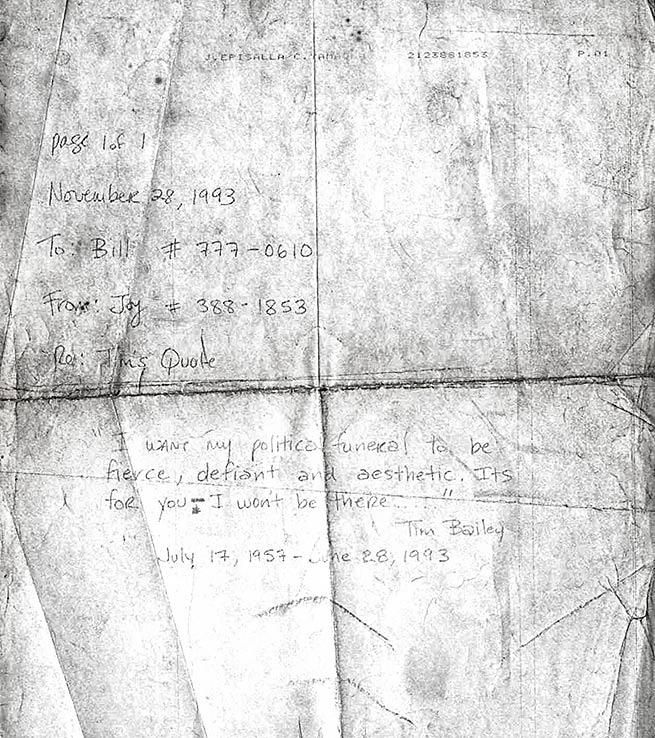 J.EPISALLA/C. 2123881853 P.01
page 1 of 1
November 28, 1993
To: Bill # 777-0610
From: Joy # 388-1853
Re: Tim's Quote
"I want my political funeral to be
fierce, defiant and aesthetic. Its
for you - I won't be there....."
Tim Bailey
July 17, 1957 - June 28, 1993